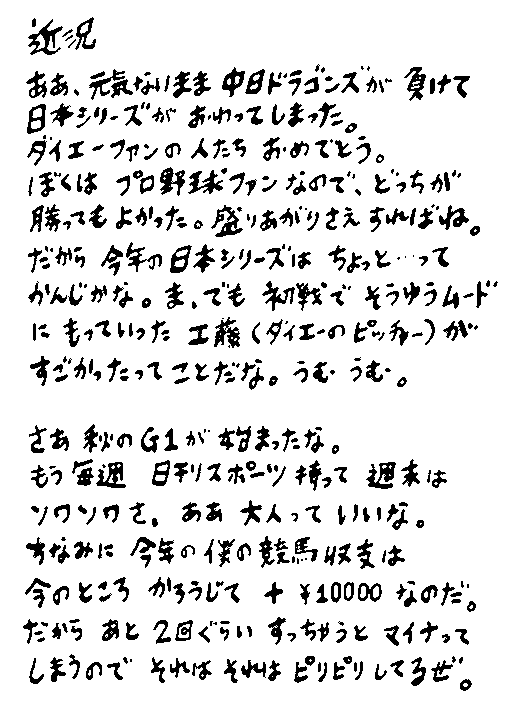 近況
ああ、元気ないまま 中日ドラゴンズが 負けて
日本シリーズが おわってしまった。
ダイエーファンの 人たち おめでとう。
ぼくは プロ野球ファン なので、どっちが
勝ってもよかった。盛りあがりさえ すればね。
だから 今年の日本シリーズは ちょっと…って
かんじかな。ま、でも 初戦で そうゆうムード
に もっていった 工藤(ダイエーのピッチャー)が
すごかったってことだな。うむ うむ。
さあ 秋のG1が 始まったな。
もう 毎週 日刊スポーツ 持って 週末は
ソワソワさ。ああ 大人って いいな。
ちなみに 今年の 僕の競馬収支は
今のところ かろうじて +¥10000 なのだ。
だから あと 2回ぐらい すっちゃうと マイナって
しまうので それは それは ピリピリしてるぜ。